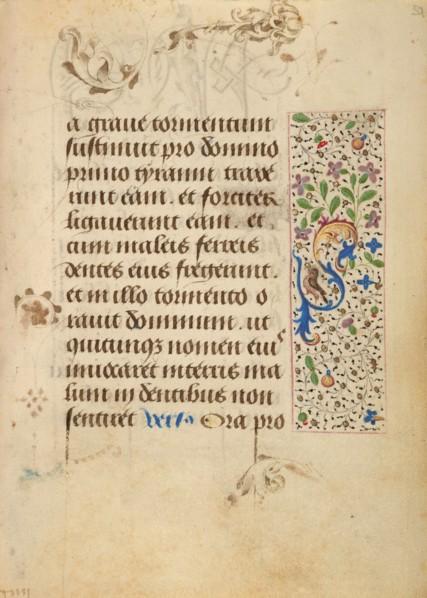 a graue tormentum
sustinuit pro domino
primo tyranni traxe
runt eam . et forciter
ligauerunt eam . et .
cum maleis ferreis
dentes eius fregerunt .
et in illo tormento o
rauit dominum . ut
quicunqꝫ nomen eius
inuocaret interris ma
lum in dentibus non
sentiret Ora pro